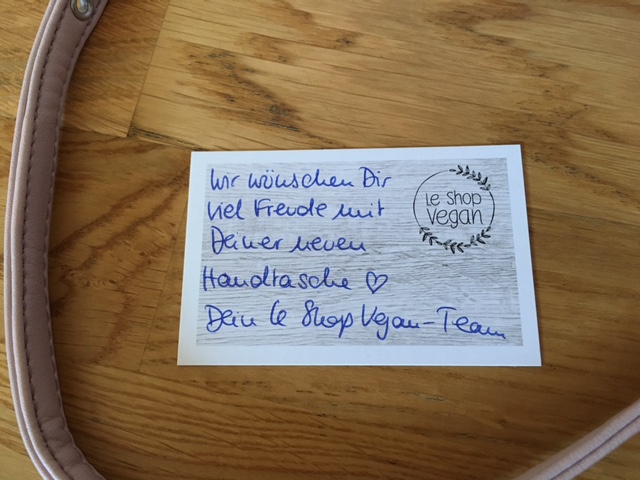 Wir wünschen Dir
viel Freude mit
Deiner neuen
Handtasche ♡
Dein Le Shop Vegan-Team
Le Shop
Vegan